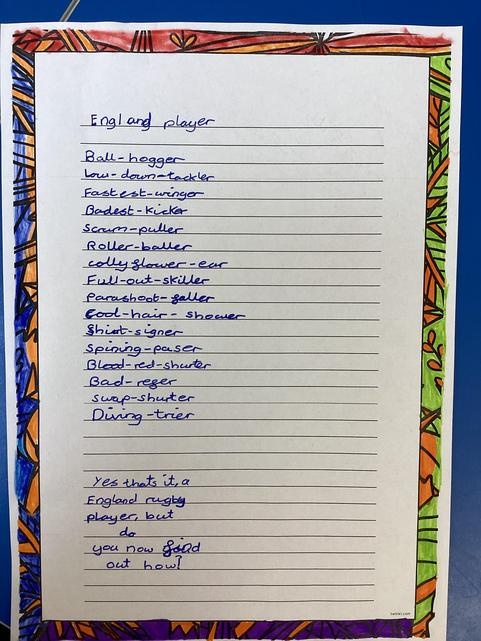 England player
Ball-hogger
Low-down-tackler
Fastest-winger
Badest-kicker
Scrum-puller
Roller-baller
collyflower-ear
Full-out-skiller
parashoot-faller
Cool-hair-shower
Shirt-signer
Spining-paser
Blood-red-shurter
Bad-reger
swap-shurter
Diving-trier
Yes thats it, a
England rugby
player, but
do
you now find
out how?
twinkl.com